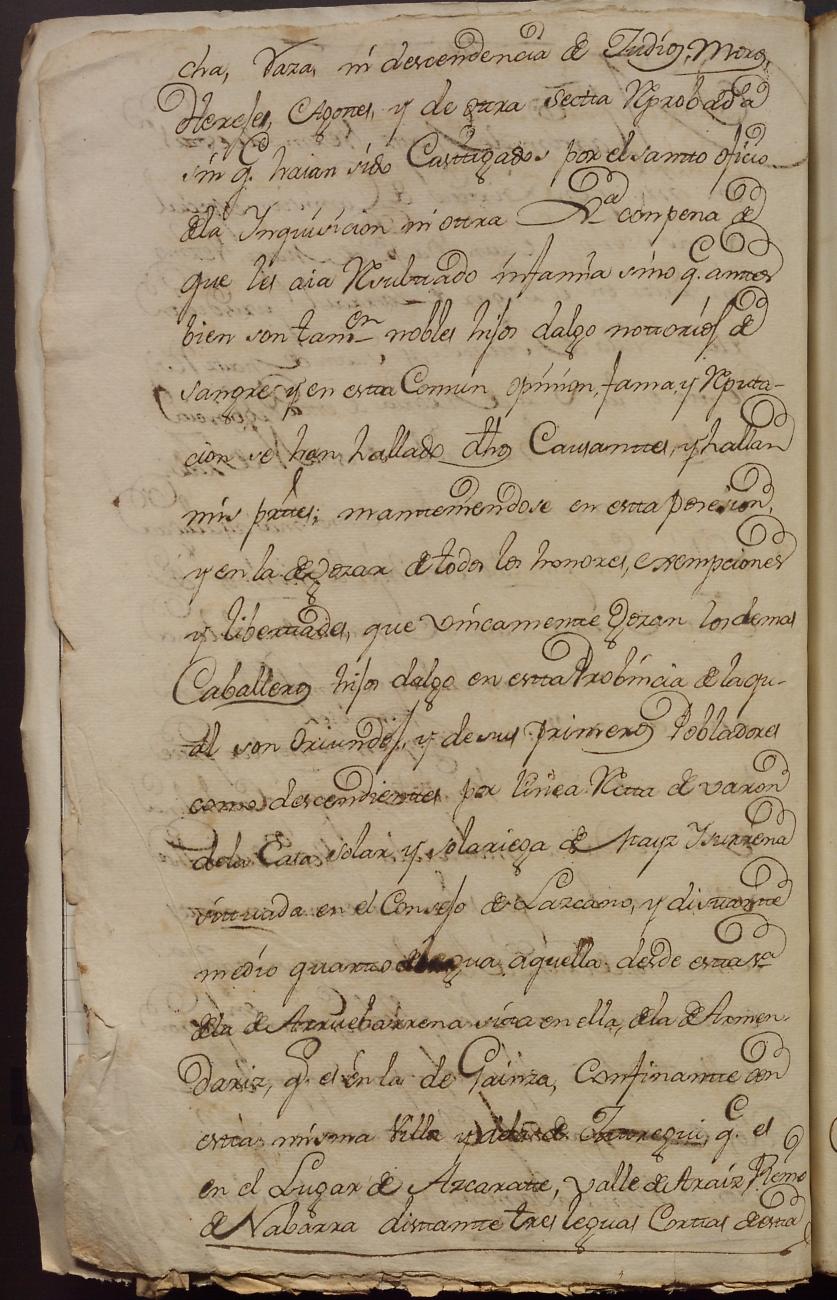 cha, Raza, ni descendencia de Judios, Moros,
Herejes, Agotes, y de otra secta Reprobada
sin q.e haian sido Casttigados por el santto oficio
dela Inquisicion ni ottra con pena de
que les aia Resulttado infamia sino q.e anttes
bien son tamvn nobles hijos dalgo nottorios de
sangre, y en estta Comun opinion, fama, y Reputta-
cion se han hallado dhos Causanttes, y hallan
mis parttes; mantteniendose en estta posesion,
y en la de gozar de todos los honores, exsempciones
y liberttades, que unicamentte gozan los demas
Caballeros hijos dalgo en estta Probincia de laqu-
al son Oriundos, y de sus primeros Pobladores
como descendienttes por linea Rectta de varon
dela Casa solar, y solariega de Mayz Ysurrena
sittuada en el Consejo de Lazcano, y disttantte
medio quartto de legua aquella desde estta va
dela de Arruebarrena sitta en ella, dela de Armen-
dariz, q.e es en la de Gainza, Confinantte con
estta misma Villa y dela de Itturregui, q.e es
en el Lugar de Azcaratte, Valle de Araiz Reino
de Nabarra disttantte tres leguas Corttas de estta